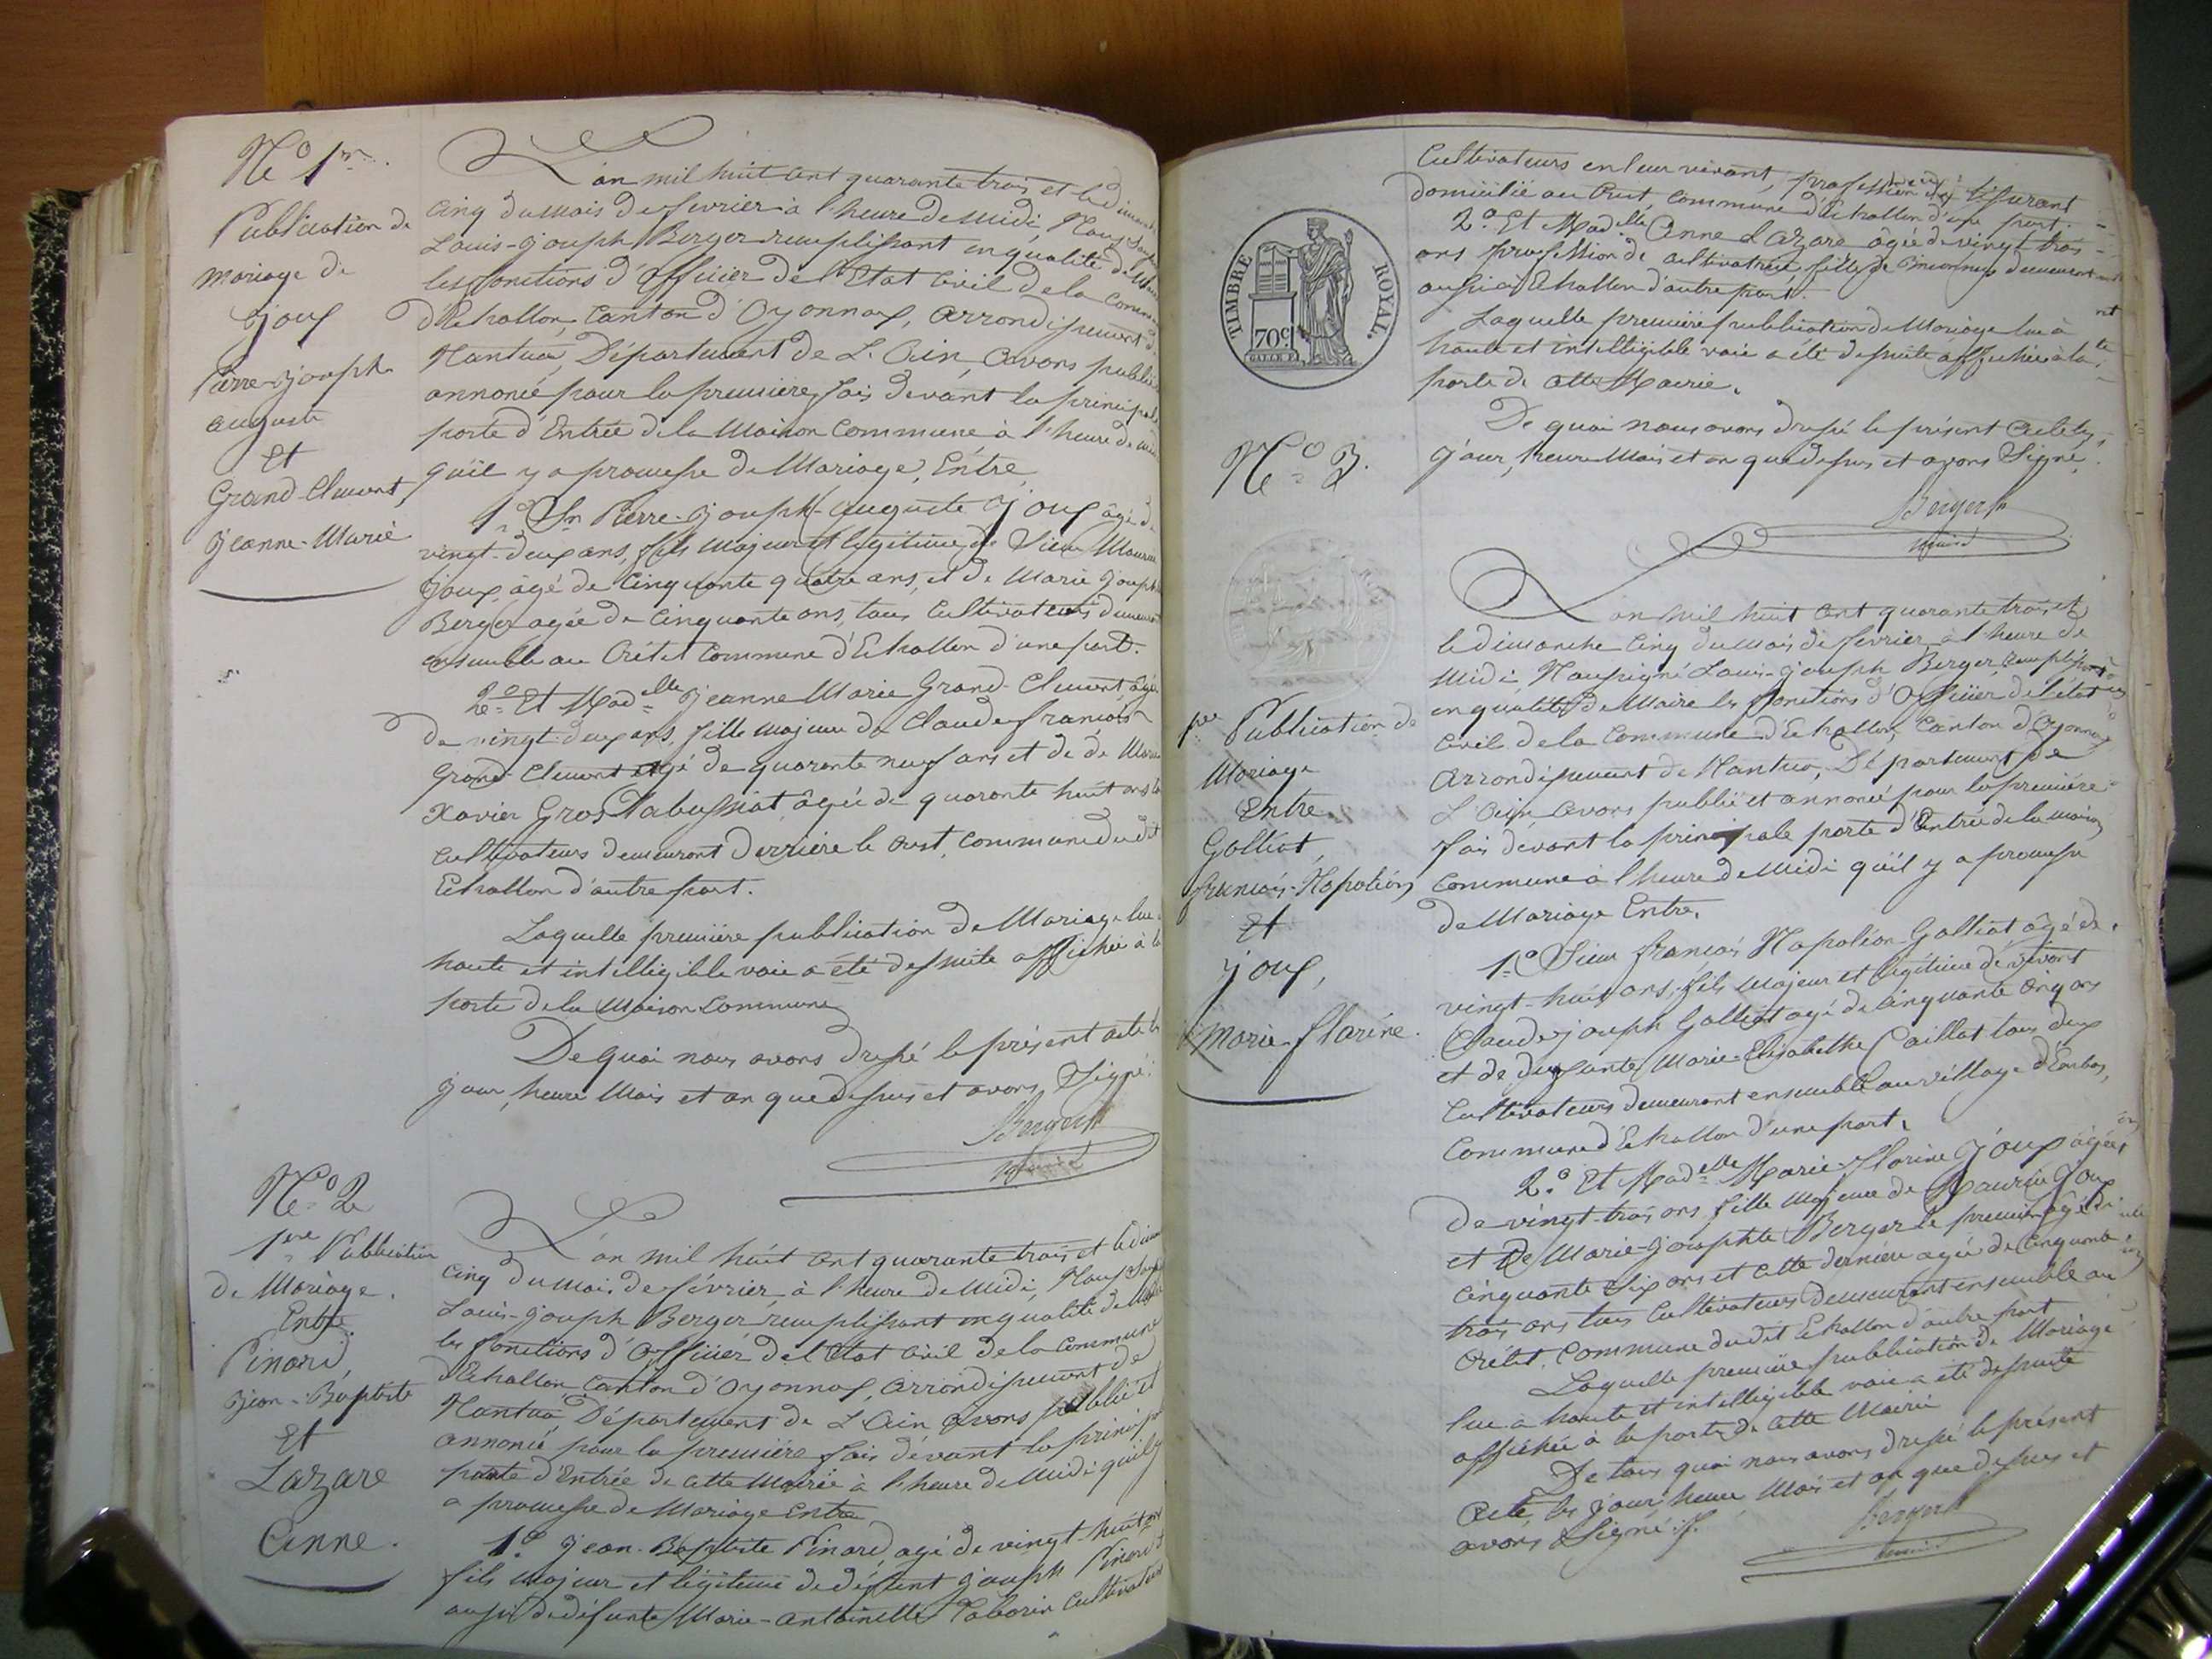 No 1er.
Publication de
Mariage de
Joux
Pierre-Joseph
Auguste
Et
Grand-Clement,
Jeanne-Marie
L'an mil huit cent quarante trois et le
cinq du mois de fevrier à l'heure de Midi, Nous
Louis-Joseph Berger remplissant en qualité de
les fonctions d'officier de l'Etat Civil de la
d'Echallon, Canton d'Oyonnax, arrondissement
Nantua, Département de L'Ain, avons publié
annoncé pour la premiere fois devant la principale
porte d'Entrée de la Maison Commune à l'heure de
qu'il y a promesse de Mariage, Entre,
1o Sr Pierre-Joseph-Auguste Joux âgé de
vingt-deux ans, fils majeur et légitime de Sieur
Joux âgé de Cinquante quatre ans, et de Marie
Berger agée de Cinquante ans, tous Cultivateurs
ensemble au Crétet Commune d'Echallon d'une part.
2o Et Madelle Jeanne Marie Grand-Clement, âgée
de vingt-deux ans, fille majeure de Claude françois
Grand-Clement agé de quarante neuf ans et de de
Xavier Gros Tabussiat âgée de quarante huit ans
Cultivateurs demeurant derrière le Crest, Commune dudit
Echallon d'autre part.
Laquelle première publication de Mariage lue
haute et intelligible voie a été de suite affichée à la
porte de la Maison Commune
De quoi nous avons dressé le présent acte les
jour, heure Mois et an que dessus et avons Signé:
Berger
No 2
1ere Publication
de Mariage.
Entre
Pinard,
Jean-Baptiste
Et
Lazare
Anne.
L'an mil huit cent quarante trois et le
cinq du mois de février, à l'heure de Midi, Nous
Louis-Joseph Berger remplissant en qualité de
les fonctions d'Officier de l'Etat Civil de la Commune
d'Echallon, Canton d'Oyonnax, arrondissement de
Nantua, Département de L'Ain avons publié et
annoncé pour la première fois dévant la
porte d'Entrée de cette Mairie à l'heure de Midi qu'il y
a promesse de Mariage Entre
1o Jean-Baptiste Pinard, agé de vingt-huit ans
fils majeur et légitime de défunt Joseph Pinard et
aussi de défunte Marie-Antoinette Taborin Cultivateurs
TIMBRE ROYAL.
70c
Cultivateurs en leur vivant, profession de
domicilié au Crest, Commune d'Echallon d'une part.
2o Et Madelle Anne Lazare âgée de vingt trois
ans profession de cultivatrice, fille de
aussi à Echallon d'autre part.
Laquelle première publication de Mariage lue à
haute et intelligible voie a été de suite affichée à la
porte de cette Mairie.
De quoi nous avons dressé le présent Acte les
jour, heure Mois et an que dessus et avons Signé.
Berger
No 3.
1ere Publication de
Mariage
Entre
Galliot,
françois-Napoléon
Et
Joux,
Marie-florine.
L'an mil huit cent quarante trois, et
le dimanche Cinq du mois de fevrier, à l'heure de
Midi Nous Louis-Joseph Berger,
en qualité de Maire les fonctions d'Officier de l'état
Civil de la Commune d'Echallon, Canton d'Oyonnax
Arrondissement de Nantua, Département de
L'Ain, avons publié et annoncé pour la première
fois devant la principale porte d'Entrée de la maison
Commune à l'heure de Midi qu'il y a promesse
de Mariage Entre,
1o Sieur françois Napoléon Galliot âgé de
vingt-huit ans, fils majeur et légitime de vivant
Claude-Joseph Galliot agé de Cinquante cinq ans
et de defunte Marie-Elisabethe Caillat tous deux
Cultivateurs demeurant ensemble au village
Commune d'Echallon d'une part.
2o Et Madelle Marie-florine Joux âgée
de vingt-trois ans, fille majeure de Maurice Joux
et de Marie-Josephte Berger le premier agé de
Cinquante Six ans et cette dernière agée de Cinquante
trois ans tous Cultivateurs demeurant ensemble au
Crétet, Commune dudit Echallon d'autre part
Laquelle première publication de Mariage
lue à haute et intelligible voie a été de suite
affichée à la porte de cette Mairie
De tous quoi nous avons dressé le présent
Acte, les jour, heure Mois et an que dessus et
avons Signé:
Berger